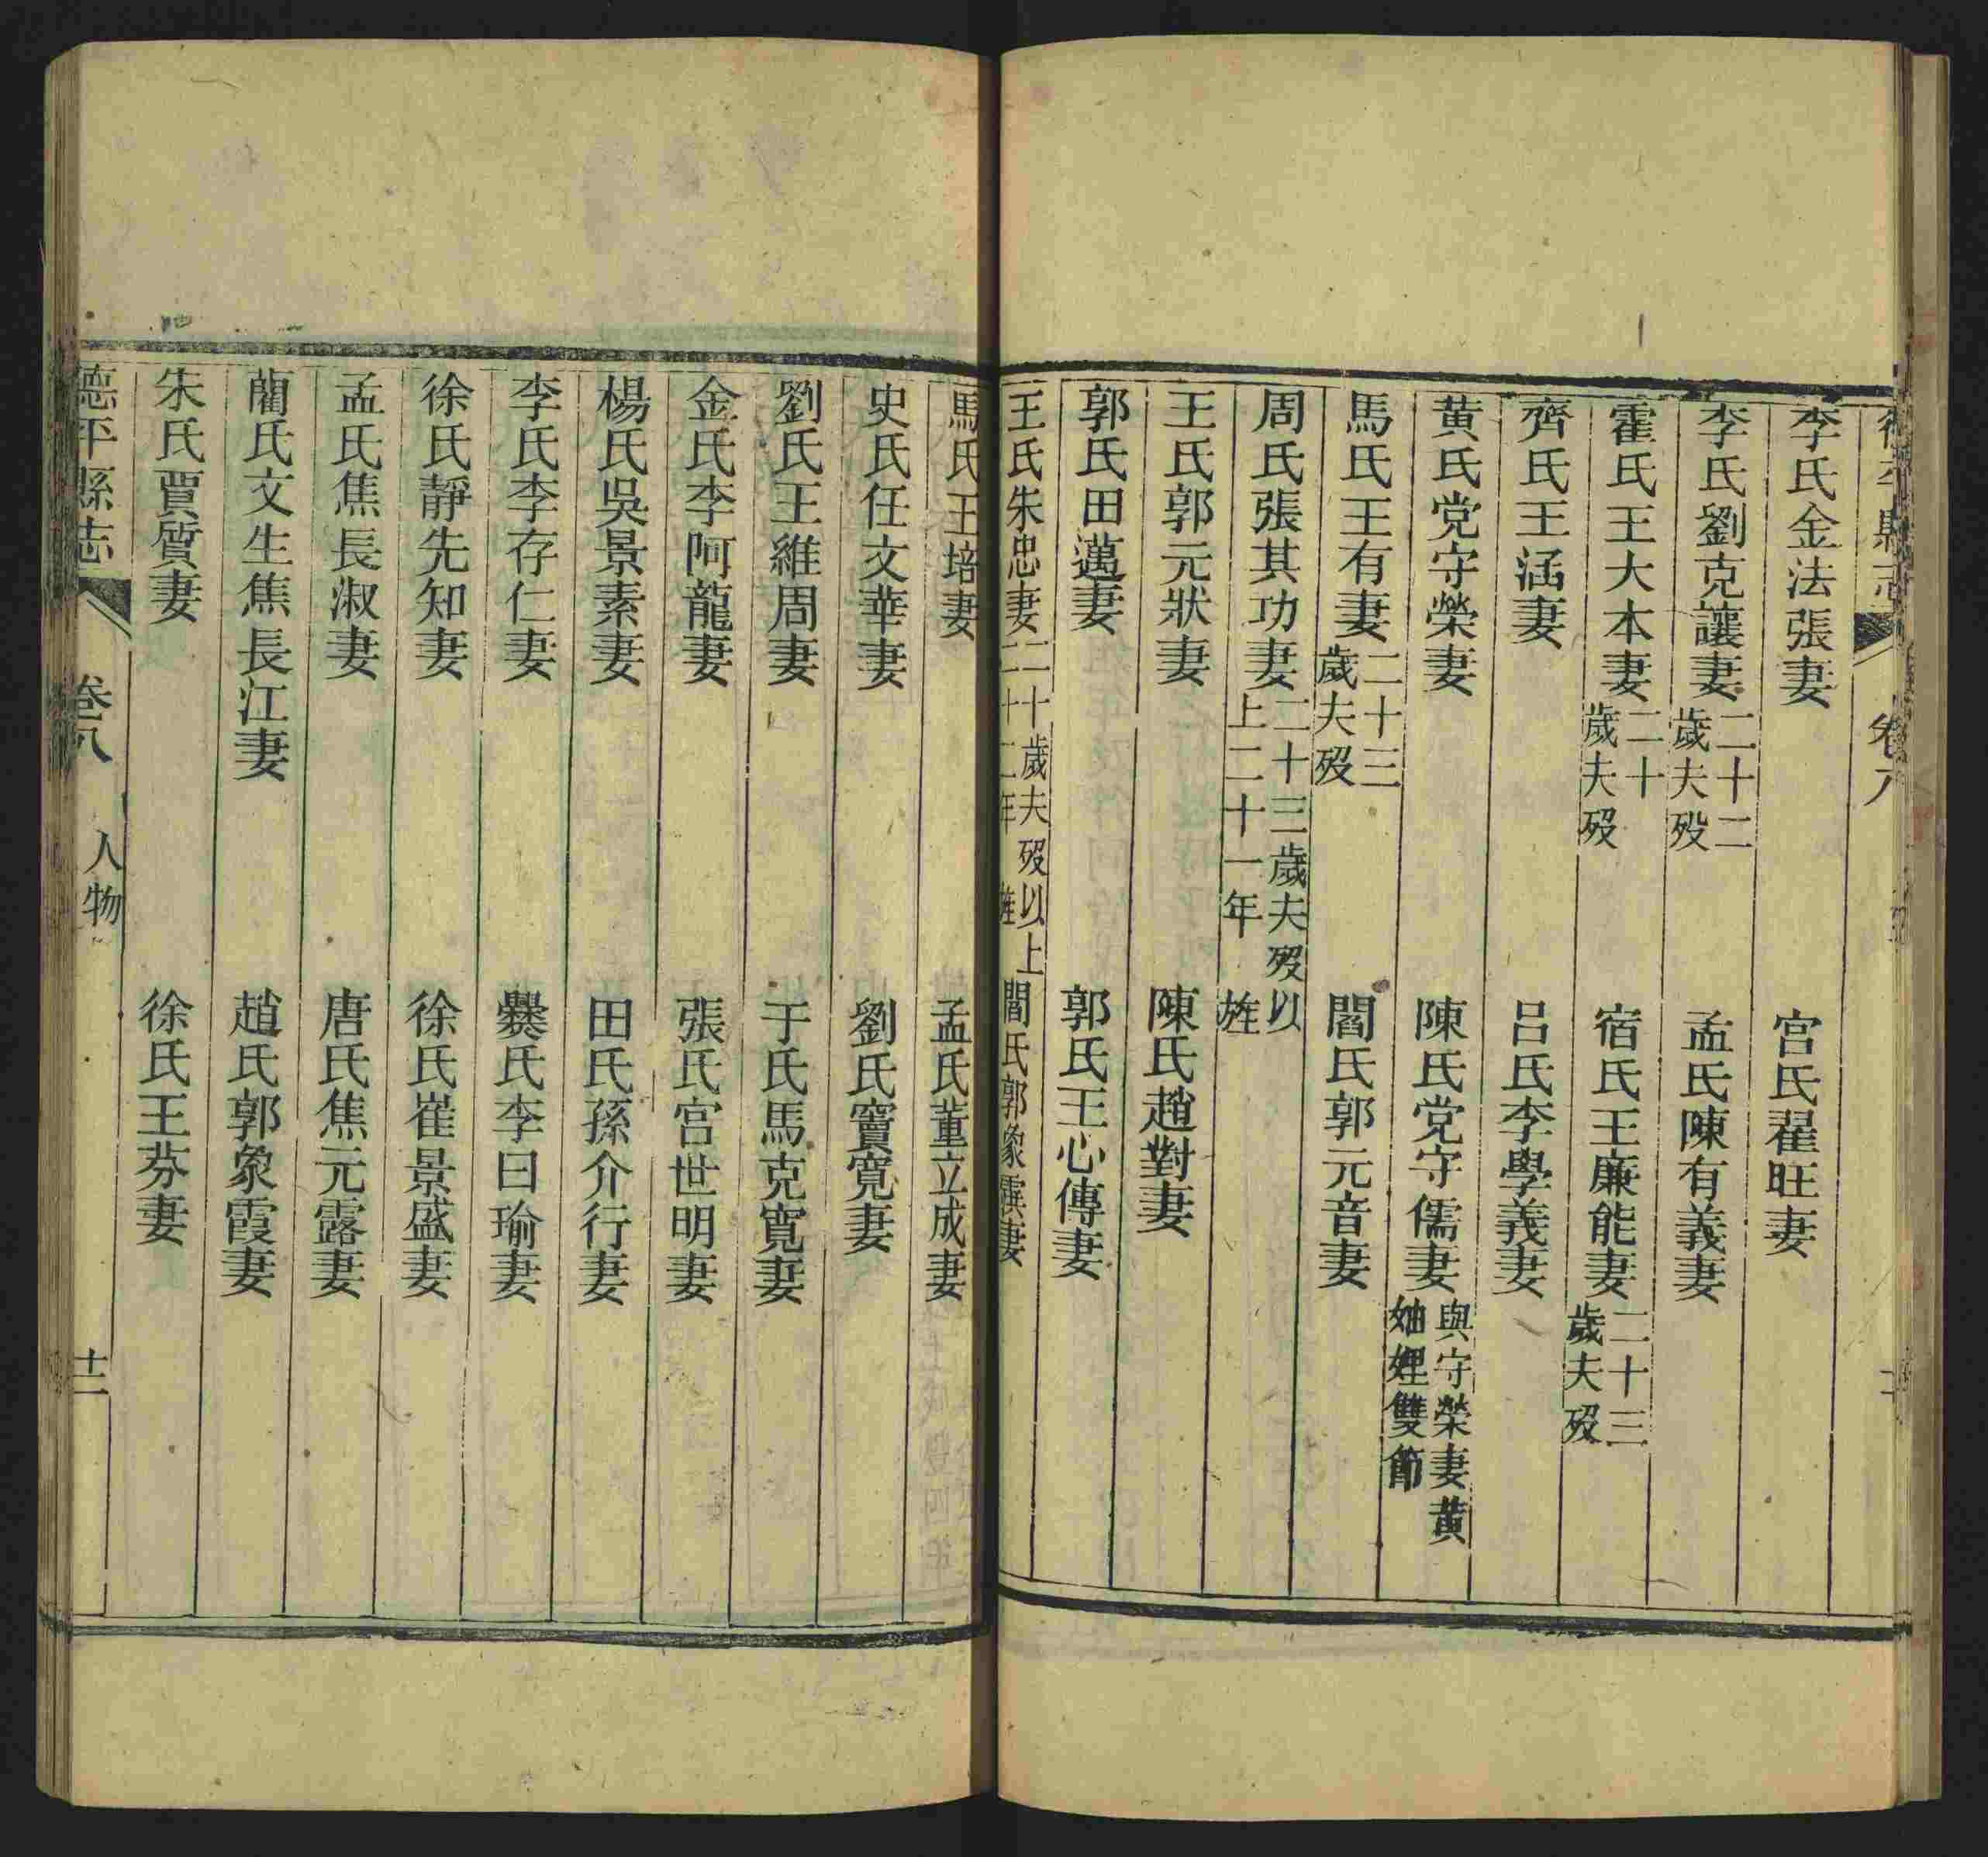 李氏金法張妻 宫氏翟旺妻
李氏劉克讓妻二十二歲夫殁 孟氏陳有義妻
霍氏王大本妻二十歲夫殁 宿氏王廉能妻二十三歲夫殁
齊氏王涵妻 吕氏李學義妻
黄氏党守榮妻 陳氏党守儒妻與守榮妻黄妯娌雙節
馬氏王有妻二十三歲夫殁 閻氏郭元音妻
周氏張其功妻二十三歲夫殁以上二十一年旌
王氏郭元狀妻 陳氏趙對妻
郭氏田邁妻 郭氏王心傳妻
王氏朱忠妻二十歲夫殁以上二十二年旌 閻氏郭象霖妻
馬氏王培妻 孟氏董立成妻
史氏任文華妻 劉氏竇寬妻
劉氏王維周妻 于氏馬克寬妻
金氏李阿龍妻 張氏宫世明妻
楊氏吳景素妻 田氏孫介行妻
李氏李存仁妻 爨氏李曰瑜妻
徐氏靜先知妻 徐氏崔景盛妻
孟氏焦長淑妻 唐氏焦元露妻
藺氏文生焦長江妻 趙氏郭象霞妻
朱氏賈質妻 徐氏王芬妻
德平縣志 卷八 人物 十二